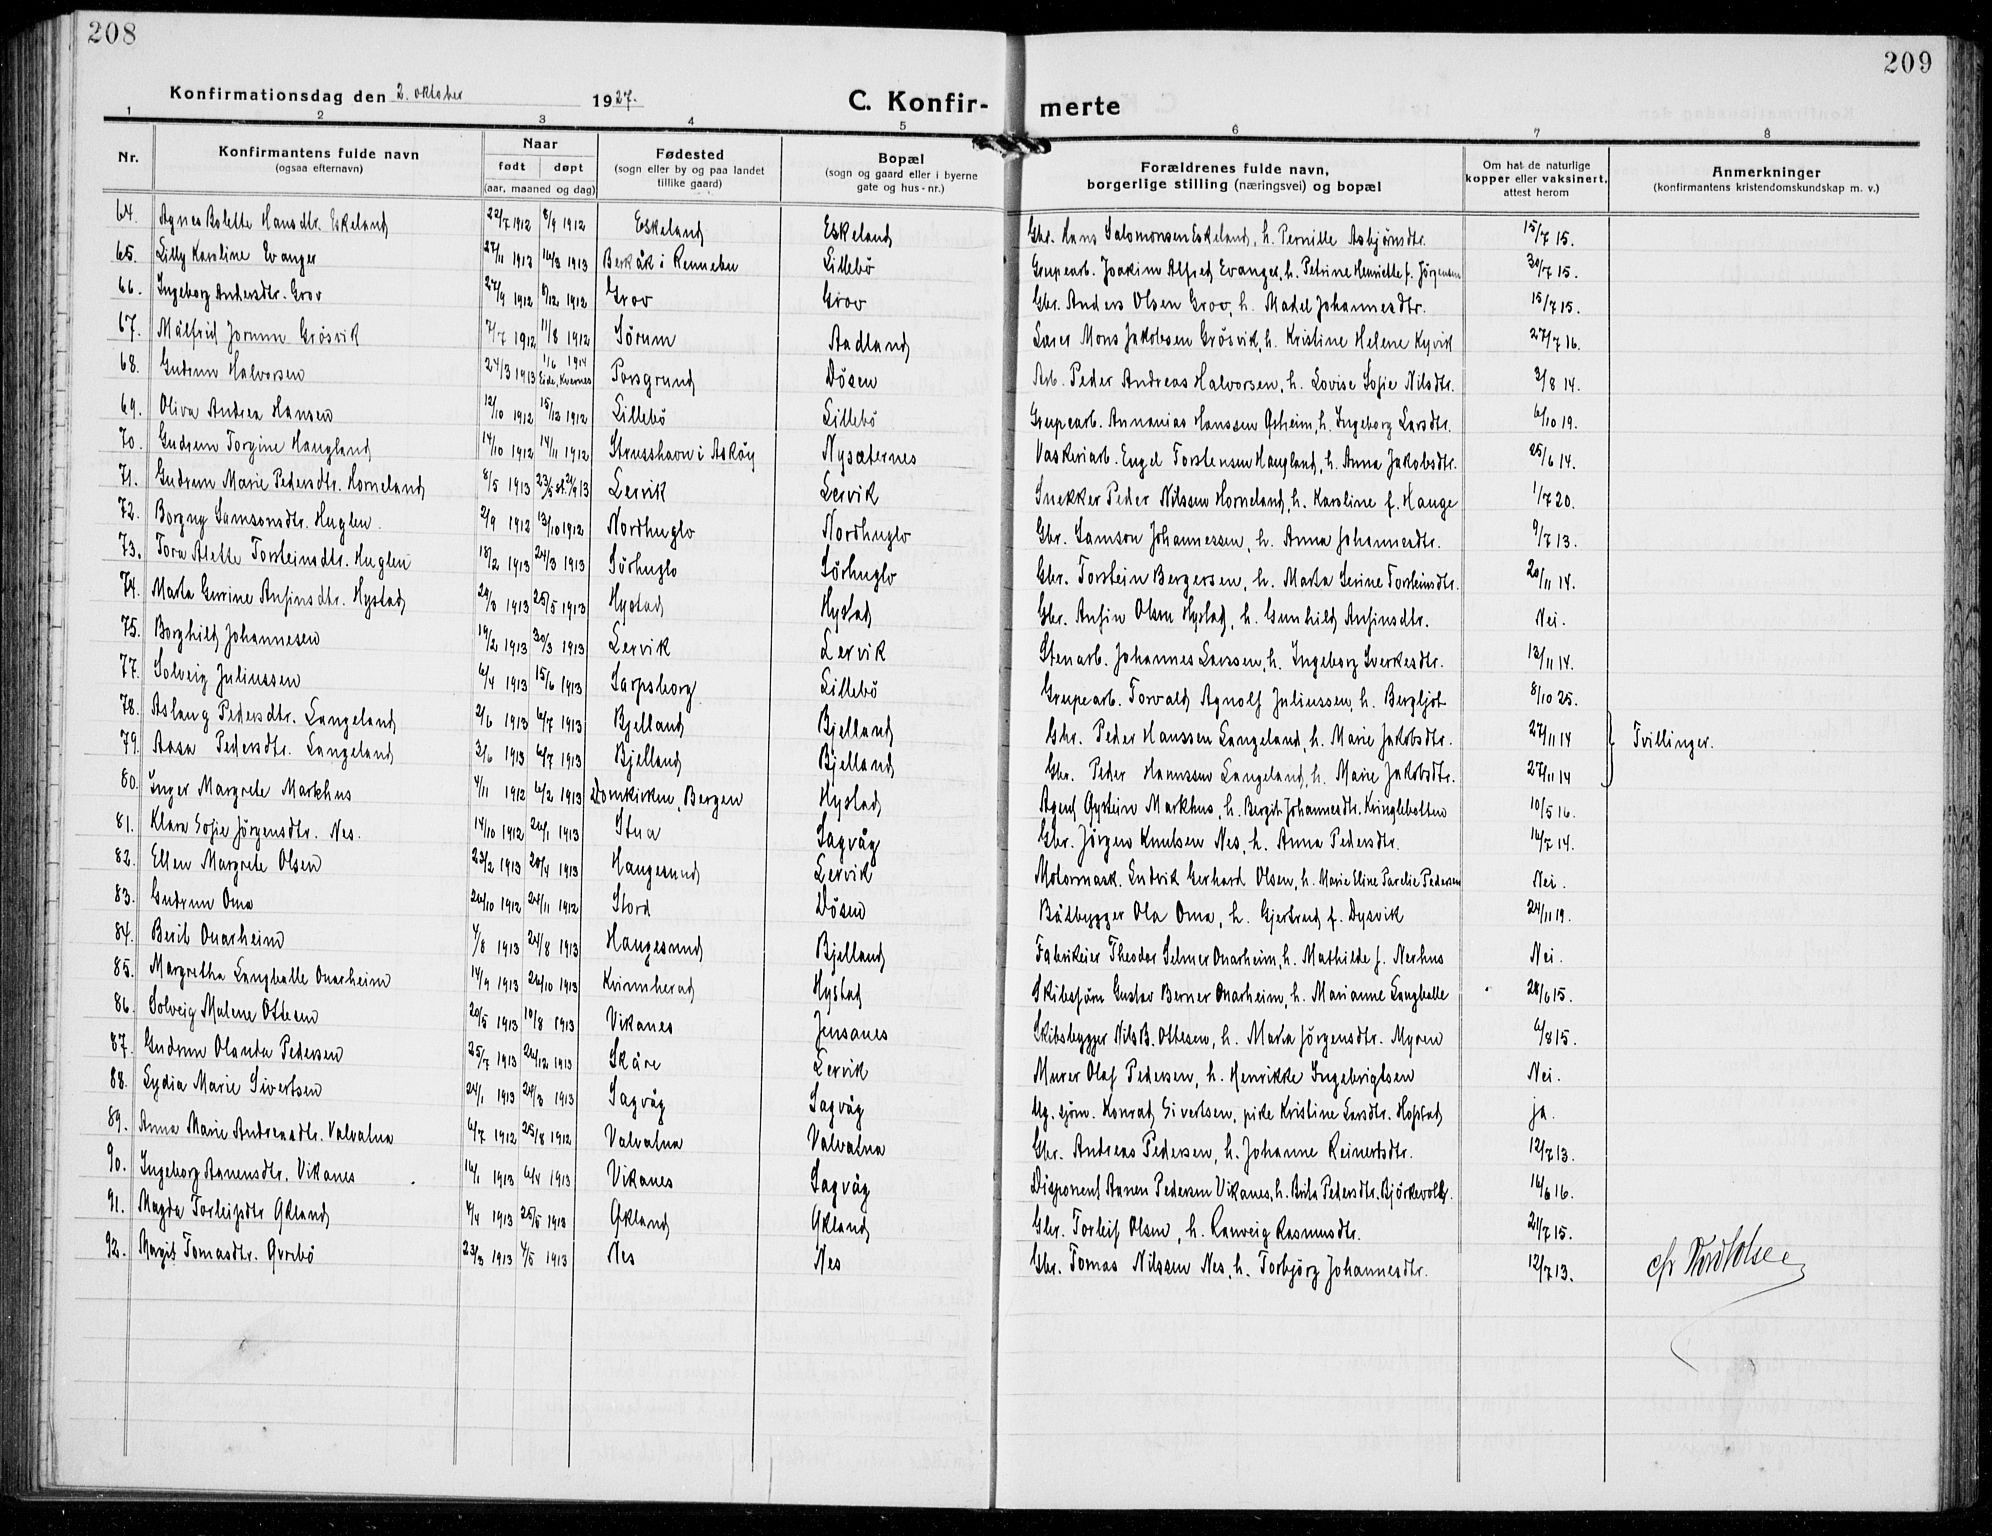 208
209
Konfirmationsdag den 2. oktober 1927.
C. Konfir- merte
1 2 3 4 5 6 7 8
Nr.
Konfirmantens fulde navn
(ogsaa efternavn)
Naar
født døpt
(aar, maaned og dag)
Fødested
(sogn eller by og paa landet
tillike gaard)
Bopæl
(sogn og gaard eller i byerne
gate og hus-nr.)
Forældrenes fulde navn,
borgerlige stilling (næringsvei) og bopæl
Om hat de naturlige
kopper eller vaksinert,
attest herom
Anmerkninger
(konfirmantens kristendomskundskap m. v.)
64. Agnes Bolette Hansdtr. Eskeland 22/7 1912 8/9 1912 Eskeland Eskeland Gbr. Hans Salomonsen Eskeland, h. Pernille Asbjørnsdtr. 15/7 15.
65. Lilly Karoline Evanger 27/11 1912 16/3 1913 Berkåk i Rennebu Lillebö Grupearb. Joakim Alfred Evanger, h. Petrine Henriette f. Jörgensen 30/7 15.
66. Ingeborg Andersdtr. Grov 27/9 1912 8/12 1912 Grov Grov Gbr. Anders Olsen Grov, h. Madel Johannesdtr. 15/7 15.
67. Målfrid Jorunn Grösvik 7/7 1912 11/8 1912 Sörum Aadland Lærer Mons Jakobsen Grösvik, h. Kristine Helene Kyvik 27/7 16.
68. Gudrun Halvorsen 24/3 1913 1/6 1914 Eide, Kvernes Porsgrund Dösen Arb. Peder Andreas Halvorsen, h. Lovise Sofie Nilsdtr. 3/8 14.
69. Oliva Andrea Hansen 12/10 1912 15/12 1912 Lillebö Lillebö Grupearb. Annanias Hanssen Øsheim, h. Ingeborg Larsdtr. 6/10 19.
70. Gudrun Torgine Haugland 14/10 1912 14/11 1912 Strusshavn i Asköy Nysæternes Vaskeriarb. Engel Torstensen Haugland, h. Anna Jakobsdtr. 25/6 14.
71. Gudrun Marie Pedersdtr. Horneland 8/5 1913 23/5 st. 21/9 13 Lervik Lervik Snekker Peder Nilssen Horneland, h. Karoline f. Hauge 1/7 20.
72. Borgny Samsonsdtr. Huglen. 2/9 1912 13/10 1912 Nordhuglo Nordhuglo Gbr. Samson Johannessen, h. Anna Johannesdtr. 9/7 13.
73. Tora Alette Torsteinsdtr. Huglen 18/2 1913 24/3 1913 Sörhuglo Sörhuglo Gbr. Torstein Bergersen, h. Marta Serine Torsteinsdtr. 20/11 14.
74. Marta Gurine Anfinsdtr. Hystad 20/3 1913 25/5 1913 Hystad Hystad Gbr. Anfin Olsen Hystad, h. Gunhild Anfinsdtr. Nei.
75. Borghild Johannesen 19/2 1913 30/3 1913 Lervik Lervik Stenarb. Johannes Larssen, h. Ingeborg Sverkesdtr. 12/11 14.
77. Solveig Juliussen 6/4 1913 15/6 1913 Sarpsborg Lillebö Grupearb. Torvald Agnolf Juliussen, h. Bergljot 8/10 25.
78. Aslaug Pedersdtr. Langeland 2/6 1913 6/7 1913 Bjelland Bjelland Gbr. Peder Hanssen Langeland, h. Marie Jakobsdtr. 27/11 14 Tvillinger.
79. Aasa Pedersdtr. Langeland 3/6 1913 6/7 1913 Bjelland Bjelland Gbr. Peder Hanssen Langeland, h. Marie Jakobsdtr. 27/11 14
80. Inger Margrete Markhus 4/11 1912 6/2 1913 Domkirken, Bergen Hystad Agent Øystein Markhus, h. Bergit Johannesdtr. Kringlebotten 10/5 16.
81. Klara Sofie Jörgensdtr. Nes. 14/10 1912 26/1 1913 Stua Sagvåg Gbr. Jörgen Knutsen Nes, h. Anna Pedersdtr. 16/7 14.
82. Ellen Margrete Olsen 23/2 1913 20/4 1913 Haugesund Lervik Motormask. Ludvik Gerhard Olsen, h. Marie Eline Parelie Pedersen Nei.
83. Gudrun Oma 26/10 1912 24/11 1912 Stord Dösen Båtbygger Ola Oma, h. Gjertrud f. Dysvik 24/11 19.
84. Berit Onarheim 4/8 1913 24/8 1913 Haugesund Bjelland Fabrikeier Theodor Selmer Onarheim, h. Mathilde f. Nerhus Nei.
85. Margretha Langballe Onarheim 14/9 1913 26/10 1913 Kvinnherad Hystad Skibsförer Gustav Berner Onarheim, h. Marianne Langballe 28/6 15.
86. Solveig Malene Ottesen 20/5 1913 10/8 1913 Vikanes Jensanes Skibsbygger Nils B. Ottesen, h. Marta Jörgensdtr. Myren 6/8 15.
87. Gudrun Olanda Pedersen 25/7 1913 26/12 1913 Skåre Lervik Murer Olaf Pedersen, h. Henrikke Ingebrigtsen Nei.
88. Lydia Marie Sivertsen 24/1 1913 24/3 1913 Sagvåg Sagvåg Ug. sjöm. Konrad Sivertsen, pike Kristine Larsdtr. Hopstad ja.
89. Anna Marie Andreasdtr. Valvatna 6/7 1912 25/8 1912 Valvatna Valvatna Gbr. Andreas Pedersen, h. Johanne Reinertsdtr. 12/7 13.
90. Ingeborg Aanensdtr. Vikanes 16/1 1913 6/4 1913 Vikanes Sagvåg Disponent Aanen Pedersen Vikanes, h. Brita Pedersdtr. Björkevoll. 16/6 16.
91. Magda Torleifsdtr Økland 4/4 1913 25/5 1913 Økland Økland Gbr. Torleif Olsen, h. Ranveig Rasmusdtr. 21/7 15.
92. Margit Tomasdtr. Øvrebö 23/3 1913 4/5 1913 Nes Nes Gbr. Tomas Nilssen Nes, h. Torbjörg Johannesdtr. 12/7 13.